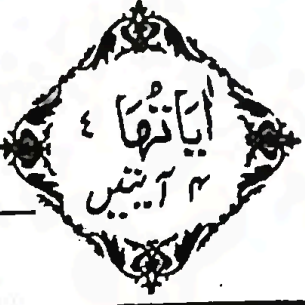 اٰيَاتُهَا ٤
۴ آیتیں